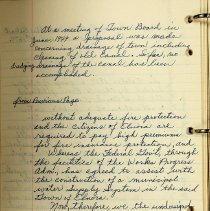 At a meeting of Town Board in
June 1944 a proposal was made
concerning drainage of town including
cleaning of old canal. So far, no
dredging of the canal has been
accomplished.
from Previous Page
without adequate fire protection
and the citizens of Elnora are
required to pay high premiums
for fire insurance protection, and
Whereas the Federal Govt, through
the facilities of the Works Progress
Adm. has agreed to assist with
the construction of a municipal
water supply System in the said
Town of Elnora.
Now, Therefore, we the undersigned